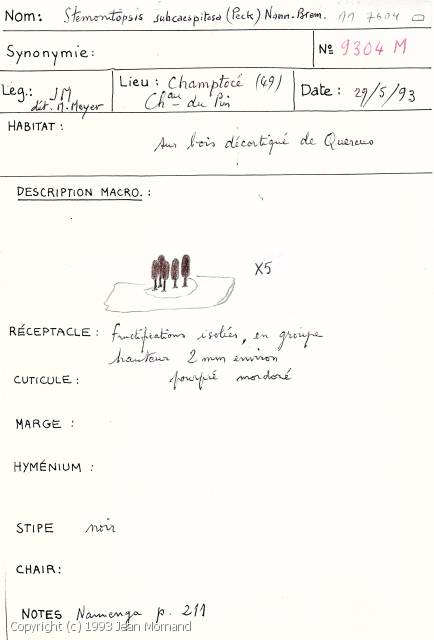 Nom: Stemonitopsis subcaespitosa (Peck) Nann.-Brem. M 7604
Synonymie:
№ 9304 M
Leg.: JM
dét. M. Meyer
Lieu : Champtocé (49)
Chau du Pin
Date : 29/5/93
HABITAT :
sur bois décortiqué de Quercus
DESCRIPTION MACRO. :
X5
RÉCEPTACLE : fructifications isolées, en groupe
hauteur 2 mm environ
CUTICULE : pourpré mordoré
MARGE :
HYMÉNIUM :
STIPE noir
CHAIR:
NOTES Nannenga p. 211
Copyright (c) 1993 Jean Mornand